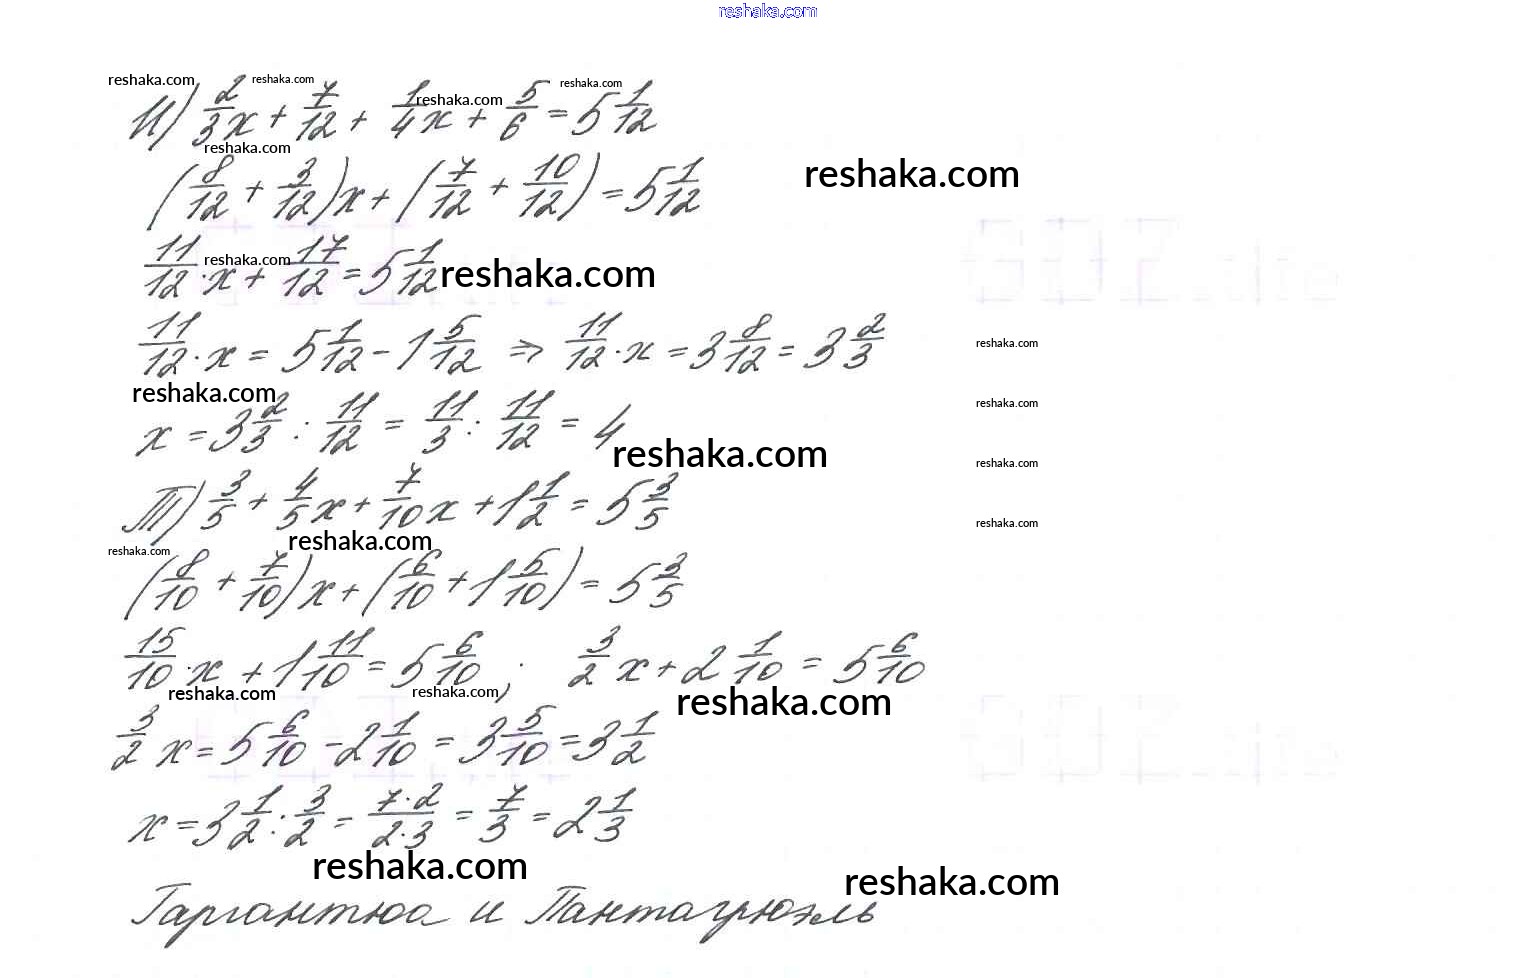 reshaka.com
reshaka.com reshaka.com reshaka.com reshaka.com
И) 2/3 x + 7/12 + 1/4 x + 5/6 = 5 1/12
reshaka.com
(8/12 + 3/12) x + (7/12 + 10/12) = 5 1/12
reshaka.com
11/12 · x + 17/12 = 5 1/12
reshaka.com reshaka.com
11/12 · x = 5 1/12 - 1 5/12 ⇒ 11/12 · x = 3 8/12 = 3 2/3
reshaka.com
reshaka.com reshaka.com
x = 3 2/3 : 11/12 = 11/3 : 11/12 = 4
reshaka.com reshaka.com
Т) 3/5 + 4/5 x + 7/10 x + 1 1/2 = 5 3/5
reshaka.com
reshaka.com reshaka.com
(8/10 + 7/10) x + (6/10 + 1 5/10) = 5 3/5
15/10 · x + 1 11/10 = 5 6/10 ; 3/2 x + 2 1/10 = 5 6/10
reshaka.com reshaka.com reshaka.com
3/2 x = 5 6/10 - 2 1/10 = 3 5/10 = 3 1/2
x = 3 1/2 : 3/2 = 7·2/2·3 = 7/3 = 2 1/3
reshaka.com reshaka.com
Гаргантюа и Пантагрюэль